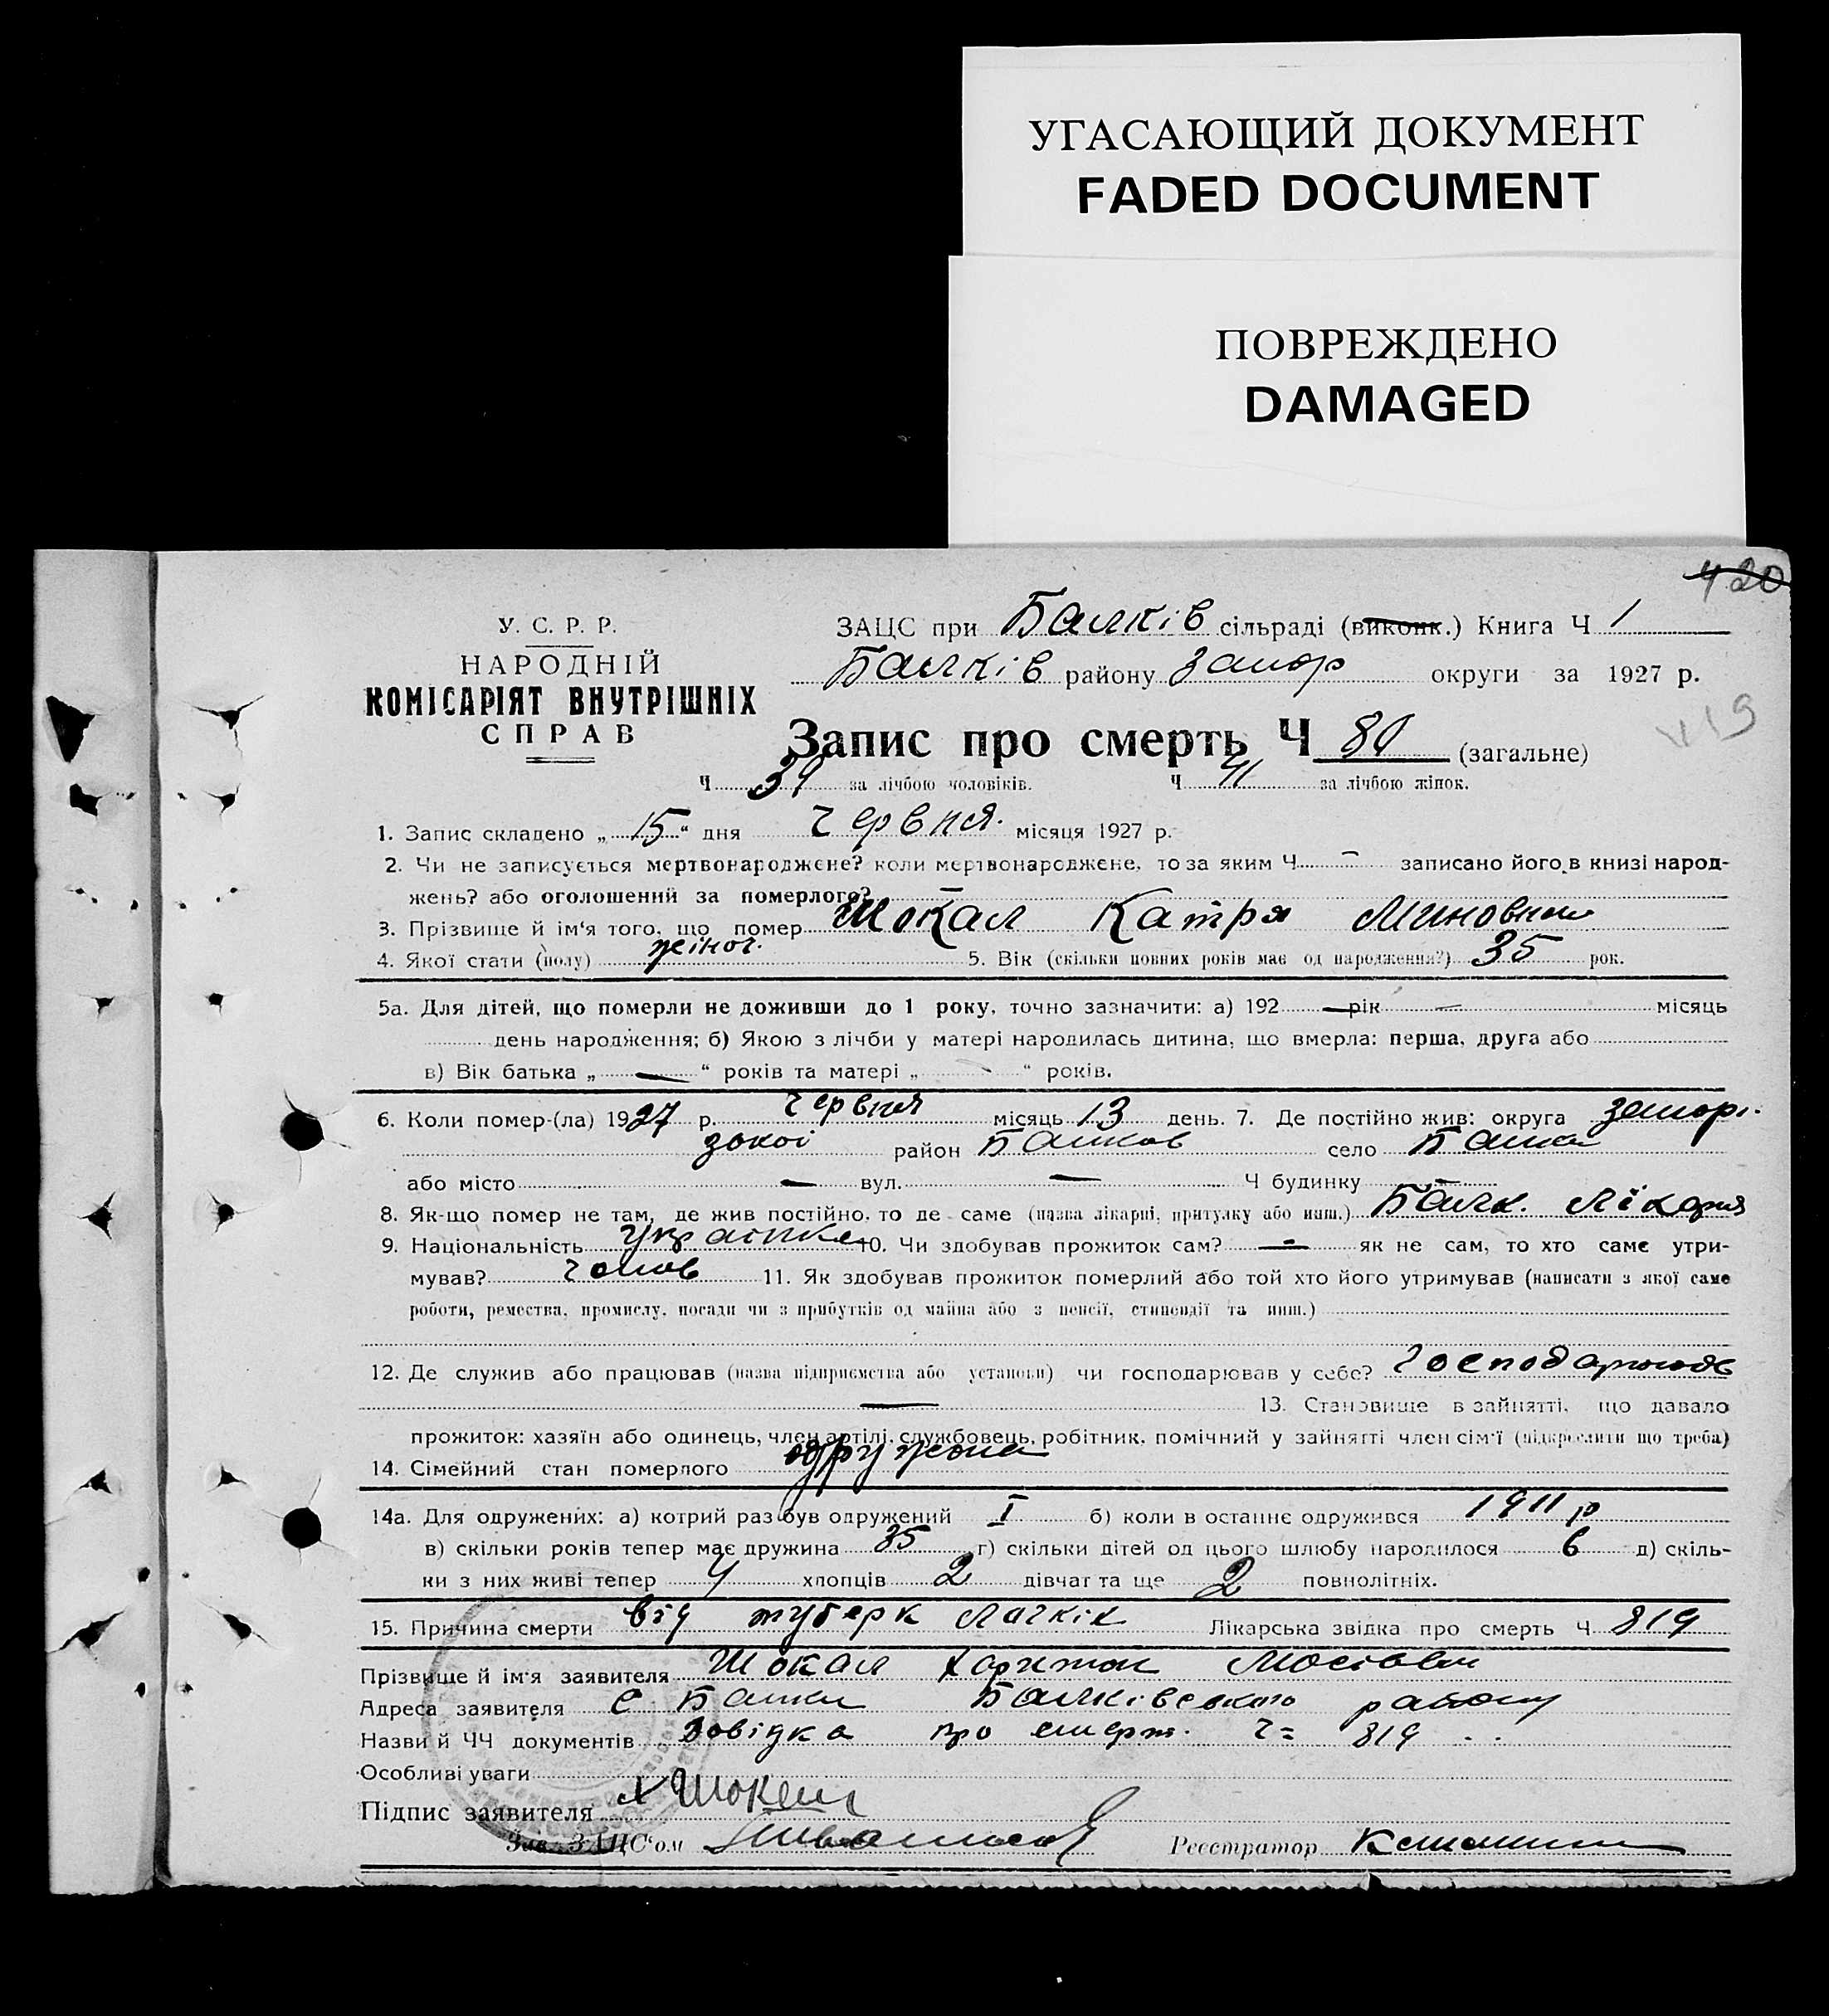 УГАСАЮЩИЙ ДОКУМЕНТ
FADED DOCUMENT
ПОВРЕЖДЕНО
DAMAGED
420
У. С. Р. Р.
НАРОДНІЙ
КОМІСАРІЯТ ВНУТРІШНІХ
СПРАВ
ЗАЦС при Балків сільраді (виконк.) Книга Ч 1
Балків району Запор округи за 1927 р.
419
Запис про смерть Ч 80 (загальне)
Ч 39 за лічбою чоловіків. Ч 41 за лічбою жінок.
1. Запис складено „ 15 “ дня Червня. місяця 1927 р.
2. Чи не записується мертвонароджене? коли мертвонароджене, то за яким Ч — записано його в книзі народ-
жень? або оголошений за померлого? —
3. Прізвище й ім'я того, що помер Шокал Катря Миновна
4. Якої стати (полу) жіноч. 5. Вік (скільки повних років має од народження?) 35 рок.
5а. Для дітей, що померли не доживши до 1 року, точно зазначити: а) 192 — рік — місяць
день народження; б) Якою з лічби у матері народилась дитина, що вмерла: перша, друга або
в) Вік батька „ — “ років та матері „ “ років.
6. Коли помер-(ла) 1927 р. Червня місяць 13 день. 7. Де постійно жив: округа Запорі-
зької район Балков село Балки
або місто — вул. — Ч будинку —
8. Як-що помер не там, де жив постійно, то де саме (назва лікарні, притулку або инш.) Балк. Лікарня
9. Національність Українка 10. Чи здобував прожиток сам? — як не сам, то хто саме утри-
мував? Чолов 11. Як здобував прожиток померлий або той хто його утримував (написати з якої саме
роботи, ремества, промислу, посади чи з прибутків од майна або з пенсії, стипендії та инш.)
12. Де служив або працював (назва підприємства або установи) чи господарював у себе? Господарював
— 13. Становище в зайнятті, що давало
прожиток: хазяїн або одинець, член артілі, службовець, робітник, помічний у зайнятті член сім'ї (підкреслити що треба)
14. Сімейний стан померлого одружена
14а. Для одружених: а) котрий раз був одружений I б) коли в останнє одружився 1911 р
в) скільки років тепер має дружина 35 г) скільки дітей од цього шлюбу народилося 6 д) скіль-
ки з них живі тепер 4 хлопців 2 дівчат та ще 2 повнолітніх.
15. Причина смерти від туберк Лагкіх Лікарська звідка про смерть Ч 819
Прізвище й ім'я заявителя Шокал Харитон Мосіович
Адреса заявителя С Балки Балківського району
Назви й ЧЧ документів Довідка про смерт. Ч= 819
Особливі уваги
Підпис заявителя Х Шокал
Зав. ЗАЦС'ом
Реєстратор